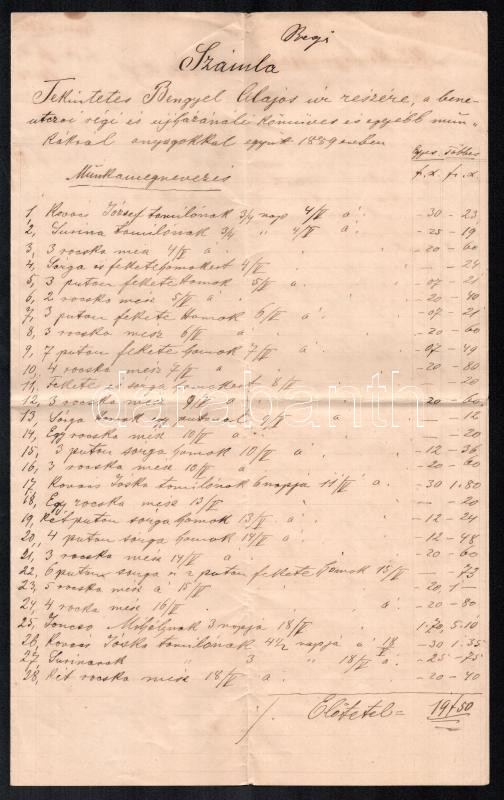 Begi
Számla
Tekintetes Bengyel Alajos úr részére, a bene-
utczai régi és ujházánáli kőmüves és egyébb mun-
kákról anyagokkal együtt 1889 évben
Egyes. Többes
Munkamegnevezés f. x. fr. x.
1, Kovács József tanulónak 3/4 nap 4/V á - 30 - 23
2, Surina tanulónak 3/4 " 4/V á - 25 - 19
3, 3 rocska mész 4/V á - 20 - 60
4, Sárga és fekete homokért 4/V - 24
5, 3 puton fekete homok 5/V á - 07 - 21
6, 2 rocska mész 5/V á - 20 - 40
7, 3 puton fekete homok 6/V á - 07 - 21
8, 3 rocska mész 6/V á - 20 - 60
9, 7 puton fekete homok 7/V á - 07 - 49
10, 4 rocska mész 7/V á - 20 - 80
11, Fekete és sárga homokért 8/V - 20
12, 3 rocska mész 9/V á - 20 - 60
13, Sárga homok egy putonal 9/V á - 12
14, Egy rocska mész 10/V á - 20
15, 3 puton sárga homok 10/V á - 12 - 36
16, 3 rocska mész 10/V - 20 - 60
17, Kovács Jóska tanulónak 6 napja 11/V á - 30 1.80
18, Egy rocska mész 13/V - 20
19, Két puton sárga homok 13/V á - 12 - 24
20, 4 puton sárga homok 14/V á - 12 - 48
21, 3 rocska mész 14/V á - 20 - 60
22, 6 puton sárga és 2 puton fekete homok 15/V - 73
23, 5 rocska mész á 15/V - 20, 1 -
24, 4 rocska mész 16/V á - 80
25, Joncso Mihálynak 3 napja 18/V 1.70, 5.10
26, Kovács Jóska tanulónak 4 1/2 napja á 18/V - 30 1.35
27, Surinanak " 3 " 18/V á - 25 - 75
28, Két rocska mész 18/V á - 20 - 40
./. Előtétel = 19f50
darabanth